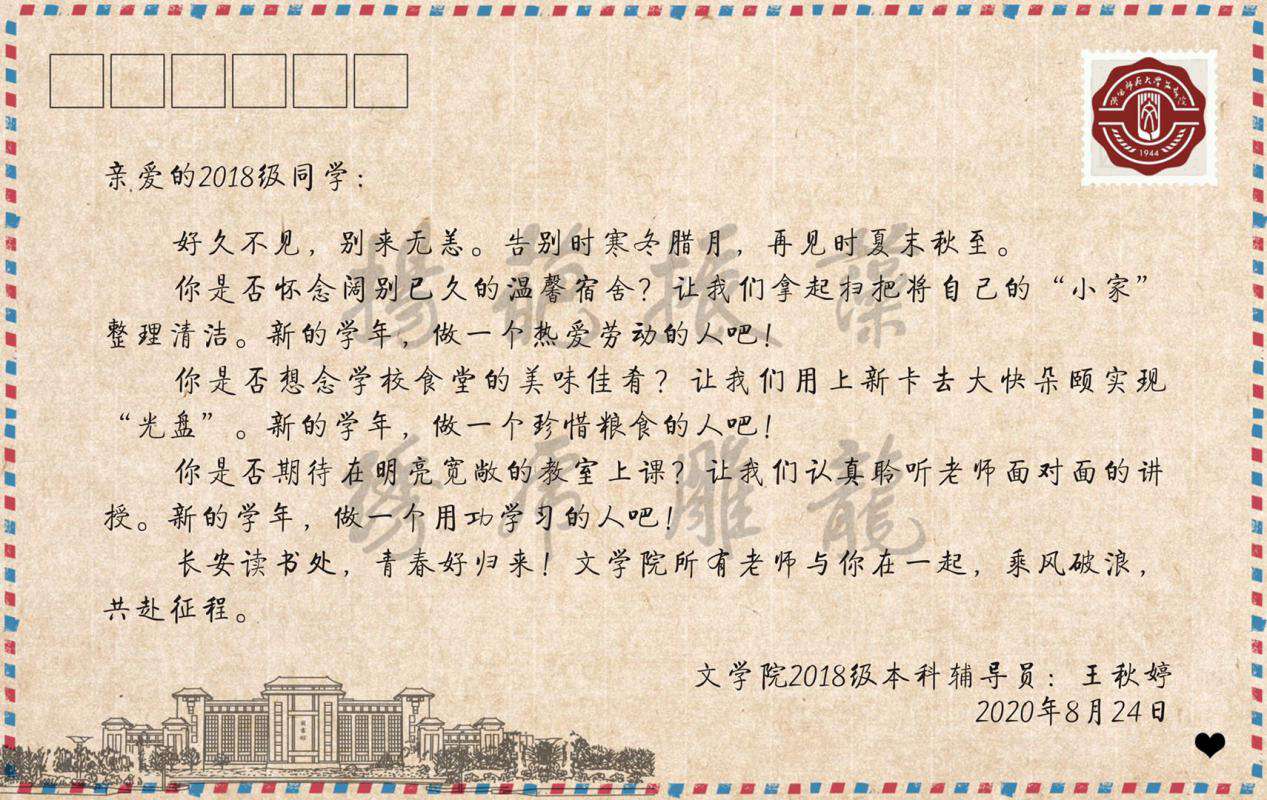 陕西师范大学文学院
1944
亲爱的2018级同学：
好久不见，别来无恙。告别时寒冬腊月，再见时夏末秋至。
你是否怀念阔别已久的温馨宿舍？让我们拿起扫把将自己的“小家”
整理清洁。新的学年，做一个热爱劳动的人吧！
你是否想念学校食堂的美味佳肴？让我们用上新卡去大快朵颐实现
“光盘”。新的学年，做一个珍惜粮食的人吧！
你是否期待在明亮宽敞的教室上课？让我们认真聆听老师面对面的讲
授。新的学年，做一个用功学习的人吧！
长安读书处，青春好归来！文学院所有老师与你在一起，乘风破浪，
共赴征程。
文学院2018级本科辅导员：王秋婷
2020年8月24日